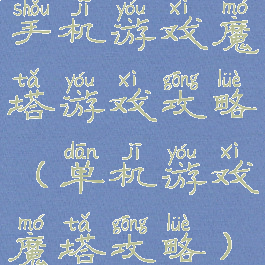 shǒu jī yóu xì mó
手机游戏魔
tǎ yóu xì gōng lüè
塔游戏攻略
dān jī yóu xì
（单机游戏
mó tǎ gōng lüè
魔塔攻略）